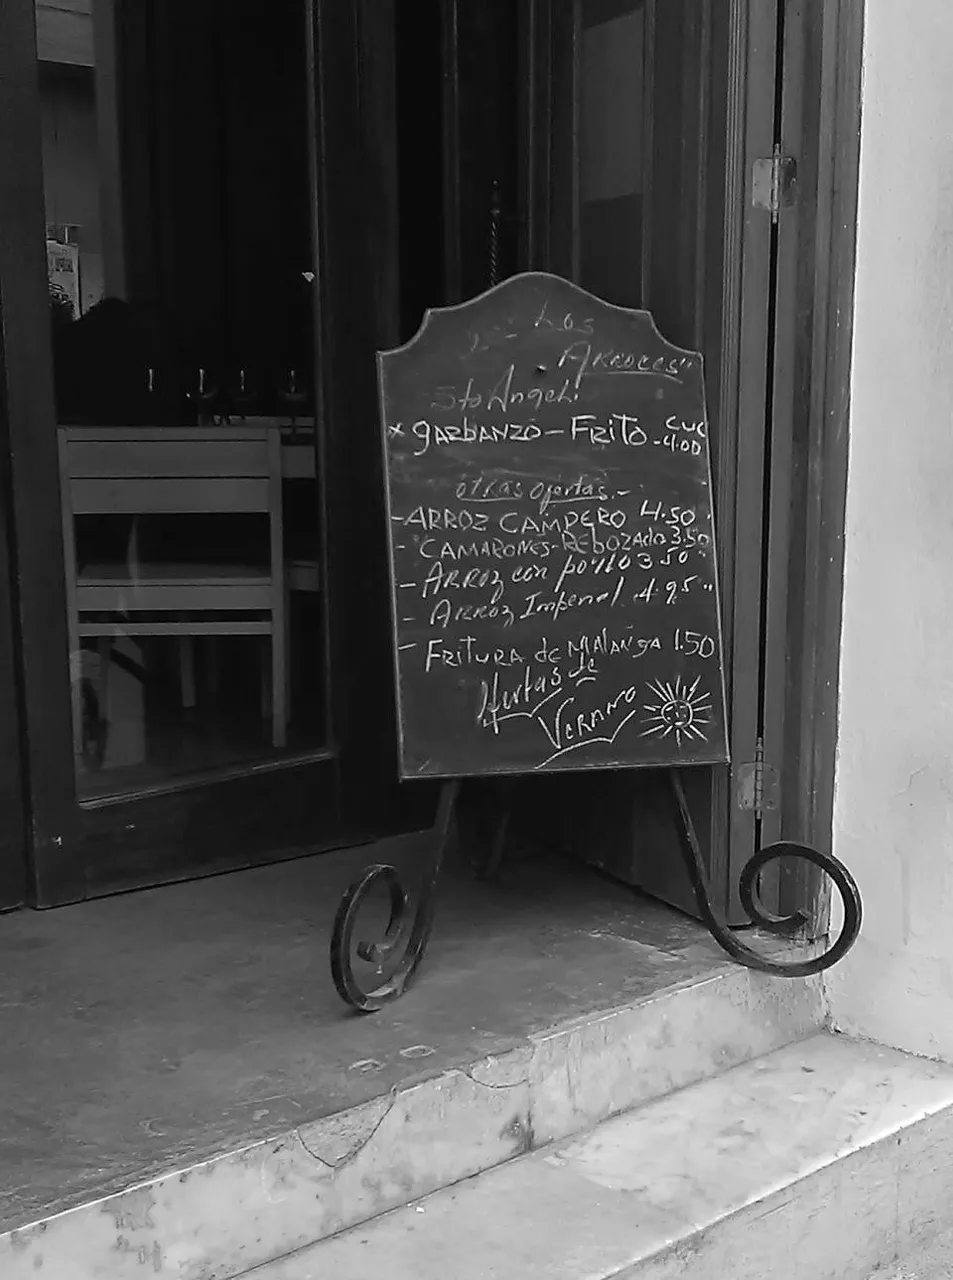 Los
Arroces"
Sto Angel!
* GARBANZO - FRITO - CUC
4.00
otras ofertas.-
- ARROZ CAMPERO 4.50
- CAMARONES-REBOZADO 3.50
- ARROZ con pollo 3.50
- ARROZ Imperial 4.95"
- FRITURA de MALANGA 1.50
Ofertas de
VERANO